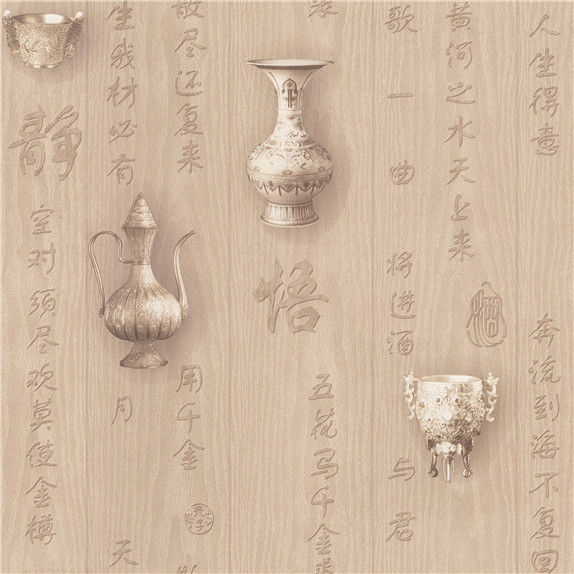 人生得意
奔流到海不复回
黄河之水天上来
酒
歌一曲
将进酒
与君
五花马千金
悟
散尽还复来
用千金
生我材必有
月
天
静
空对须尽欢莫使金樽